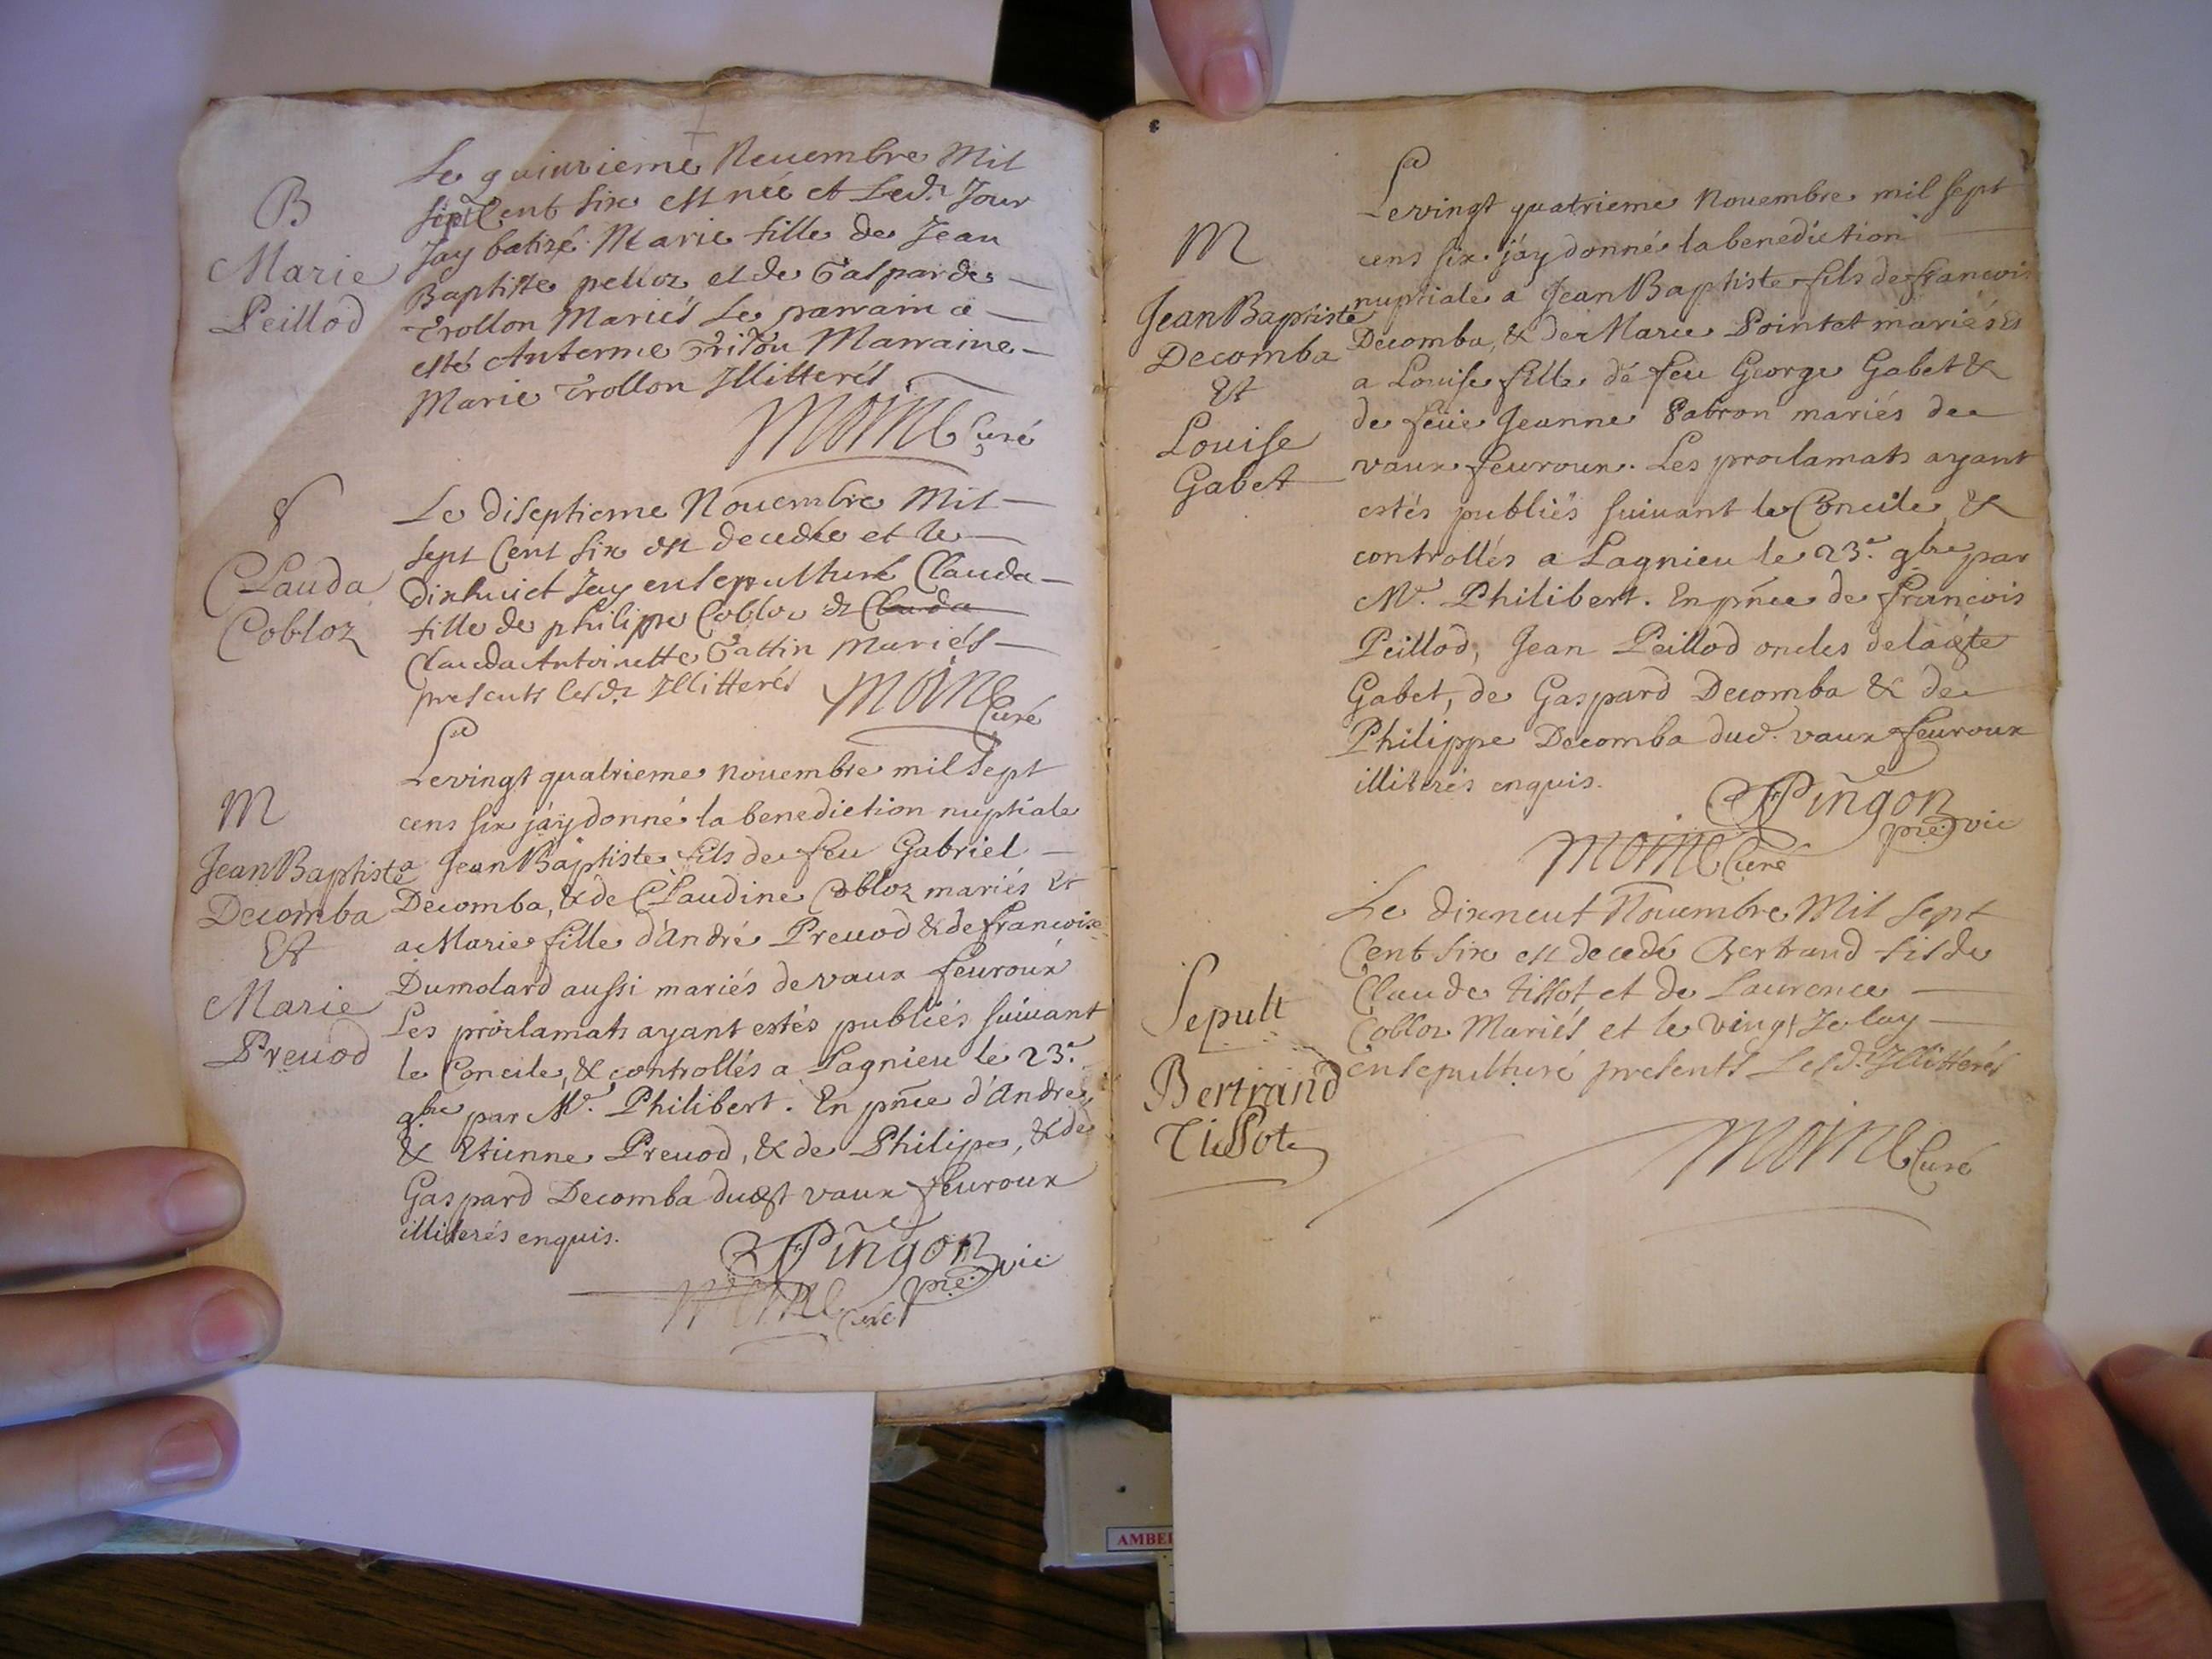 B
Marie
Peillod
Le quinzieme Nouembre Mil
sept Cent six est née et Led.t Jour
Jay batizé Marie fille de Jean
Baptiste pelioz et de Gasparde
Trollon Mariés Le parrain a
esté Antoine Marraine
Marie Trollon Illitterés
Moine Curé
S
Clauda
Cobloz
Le diseptieme Nouembre Mil
sept Cent six est decedée et le
dixhuict Jay ensepulturé Clauda
fille de philippe Cobloz & Clauda
Clauda Antoinette Gattin Mariés
presents lesd. Illitterés
Moine
Curé
M
Jean Baptiste
Decomba
Et
Marie
Preuod
Le vingt quatrieme nouembre mil sept
cens six j'ay donné la benediction nuptiale
a Jean Baptiste fils de feu Gabriel
Decomba, & de Claudine Cobloz mariés Et
a Marie fille d'André Preuod & de francoise
Dumolard aussi mariés de vaux feuroux
Les proclamats ayant estés publiés suiuant
le Concile, & controllés a Lagnieu le 23.e
9bre par M.e Philibert. En pñce d'André,
& Etienne Preuod, & de Philipe, & de
Gaspard Decomba dud.t vaux feuroux
illiterés enquis.
Pingon
pre. vic
Moine Curé
M
Jean Baptiste
Decomba
Et
Louise
Gabet
Le vingt quatrieme nouembre mil sept
cens six j'ay donné la benediction
nuptiale a Jean Baptiste fils de francois
Decomba, & de Marie Pointet mariés Et
a Louise fille de feu George Gabet &
de feüe Jeanne Patron mariés de
vaux feuroux. Les proclamats ayant
estés publiés suiuant le Concile, &
controllés a Lagnieu le 23.e 9bre par
M.e Philibert. En pñce de francois
Peillod, Jean Peillod oncles de la
Gabet, de Gaspard Decomba & de
Philippe Decomba dud. vaux feuroux
illiterés enquis.
Pingon
pre. vic
Moine Curé
Sepult
Bertrand
Tissot
Le dixneuf Nouembre Mil sept
Cent six est decedé Bertrand fils de
Claude tissot et de Laurence
Cobloz Mariés et le vingt Je lay
ensepulturé presents Lesd. Illitterés
Moine Curé
AMBE